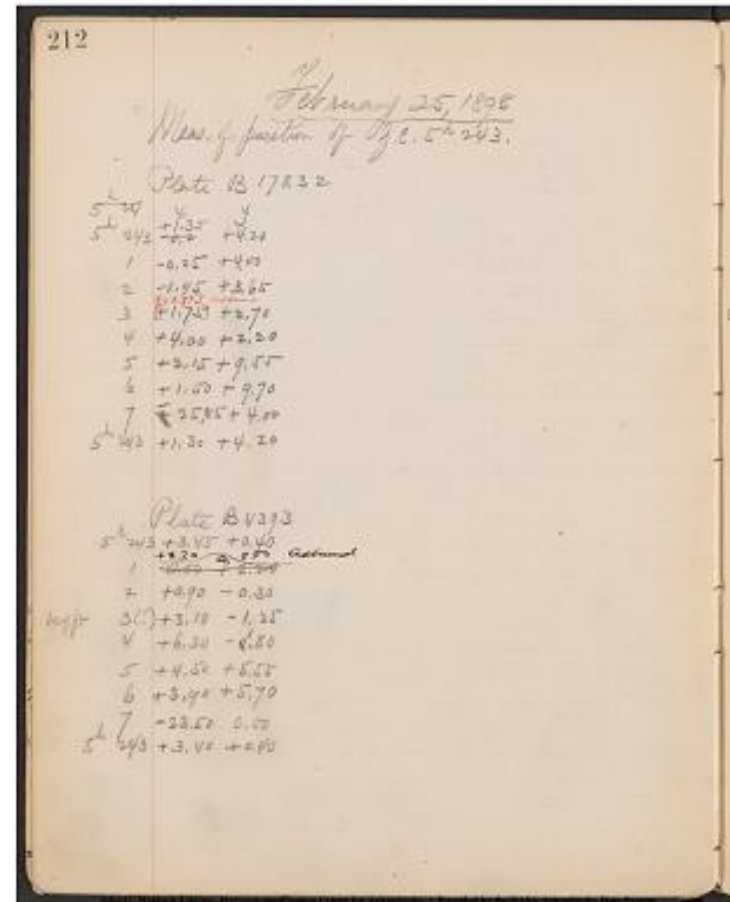 212
February 25, 1898
Meas. of position of Z.C. 5h 243.
Plate B 17832
5h 24
x y
5h 243 +1.35 +4.20
1 -0.25 +4.00
2 -1.45 +3.65
3 +1.75 +2.70
4 +4.00 +2.20
5 +2.15 +9.55
6 +1.50 +9.70
7 -25.85 +4.00
5h 243 +1.30 +4.20
Plate B
5h 243 +3.45 +0.40
+0.20 Assumed
1
2 +0.90 -0.30
3(?) +3.10 -1.25
4 +6.30 -1.80
5 +4.50 +5.55
6 +3.90 +5.70
7 -23.50 0.00
5h 243 +3.40 +0.40